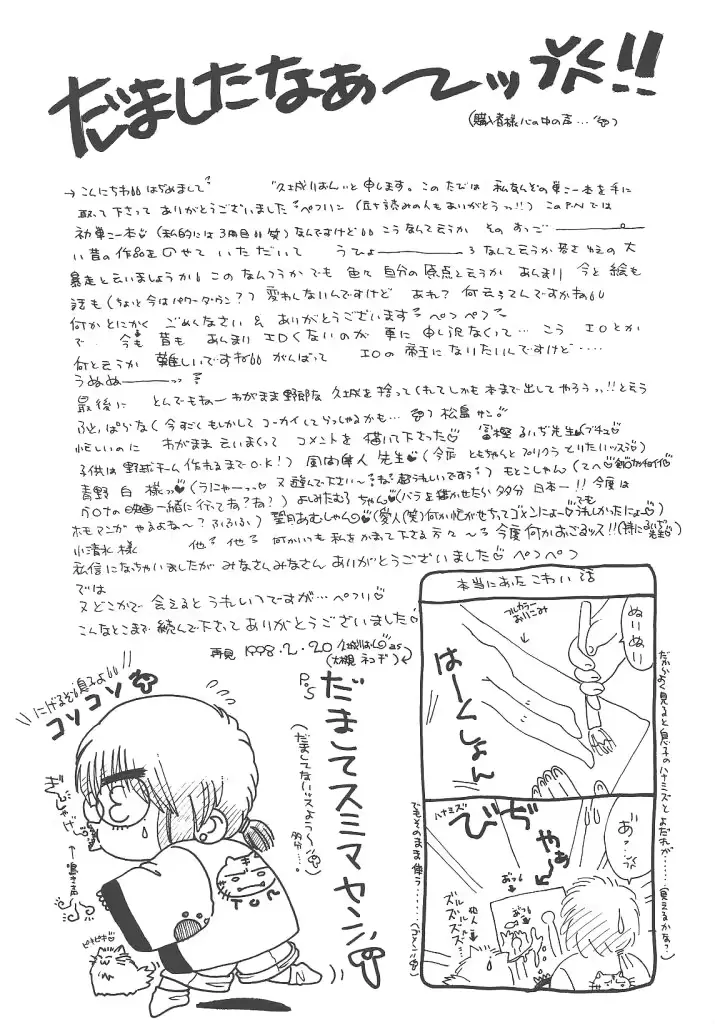 だましたなぁ〜ッ!!
(購入者様心の中の声…)
→ こんにちわ はぢめまして 久城りおんと申します。このたびは 私なんぞの単こー本を手に
取って下さって ありがとうございました ペフリン (立ち読みの人もありがとうっ!!) このP.Nでは
初単こー本 (私的には3冊目 笑) なんですけど こうなんて云うか そのすっごーーー。
い昔の作品をのせて いただいて うひょーーーろ なんて云うか 若さゆえの大
暴走と云いましょうか このなんつうか でも 色々 自分の原点と云うか あんまり 今と絵も
話も (ちょっと今はパワーダウン?) 変わんないんですけど あれ? 何云ってんですかね
何か とにかく ごめんなさい & ありがとうございます ペンペフ
で 今も昔も あんまり エロくないのが 更に申し訳なくって… こう エロとか
何と云うか 難しいですね がんばって エロの帝王になりたいんですけど‥‥
うぬぬーーーっっ
最後に とんでもねー わがまま野郎な 久城を捨ってくれてしかも本まで出してやろうっ!!と云う
ふとっぱらな 今すごくもしかして コーカイしてらっしゃるかも… 松島サン
忙しいのに わがまま云いまくって コメントを描いて下さった♡ 富樫るいぢ先生♥(ブチュ♡
子供は野球チーム作れるまでO.K!) 風間隼人先生♡(今度 ともちゃんとプリクラ とりたいッスぅ) もとこしゃん (てへ♡
青野 白 様っっ♥(うにゃーっっ♡ 又遊んで下さい〜ね 超うれいですぅ) よしみたむろちゃん♡(バラを描かせたら多分日本一!! 今度は
映画一緒に行ってね?ね?) 望月あむしゃん♡(愛人(笑)何か忙がせちってゴメンにょー♡でもうれしかったにょー♡)
ホモマンガ やるよね〜? ふふふふ)
小清水様 他? 他? 何かいつも私をかまって下さる方々 〜ろ 今度何かおごるッス!!(特にるいぢ先生♡)
私信になっちゃいましたが みなさんみなさん ありがとうございました♡ ペコペコ
では
又どこかで 会えるとうれしいのですが… ペフリ♡
こんなとこまで続んで下さって ありがとうございました♡
再見 1998.2.20 久城りおん♡as
(大槻 ネコヂ)
P.S
だましてスミマセン
(だましてないッスよう〜 多分…。)
にげるぞ息子よ!!
コソコソ
ぎんじゃげ
↑鳴き声
ピキピキ♡
TON
本当にあったこわい話
フルカラーおりこみ
ぬりぬり
はーくしょん
だからよく見ると息子のハナミズとよだれが……(見えるかな?)
ハナミズ
びぢやぁー
あ?…
おつ
おつ
犯人
ズルズルズルズズ…
でもそのまま使う……(ゴメン)